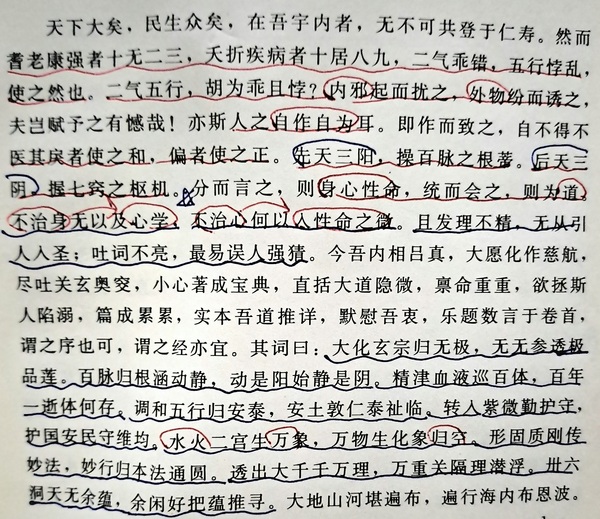 天下大矣，民生众矣，在吾宇内者，无不可共登于仁寿。然而
耆老康强者十无二三，夭折疾病者十居八九，二气乖错，五行悖乱，
使之然也。二气五行，胡为乖且悖？内邪起而扰之，外物纷而诱之，
夫岂赋予之有憾哉！亦斯人之自作自为耳。即作而致之，自不得不
医其戾者使之和，偏者使之正。先天三阳，操百脉之根蒂。后天三
阴，握七窍之枢机。分而言之，则身心性命，统而会之，则为道，
不治身无以及心学，不治心何以入性命之微。且发理不精，无从引
人入圣；吐词不亮，最易误人强猜。今吾内相吕真，大愿化作慈航，
尽吐关玄奥突，小心著成宝典，直括大道隐微，禀命重重，欲拯斯
人陷溺，篇成累累，实本吾道推详，默慰吾衷，乐题数言于卷首，
谓之序也可，谓之经亦宜。其词曰：大化玄宗归无极，无无参透极
品莲。百脉归根涵动静，动是阳始静是阴。精津血液巡百体，百年
一逝体何存。调和五行归安泰，安土敦仁泰祉临。转人紫微勤护守，
护国安民守维均。水火二宫生万象，万物生化象归空。形固质刚传
妙法，妙行归本法通圆。透出大千千万理，万重关隔理潜浮。卅六
洞天无余蕴，余闲好把蕴推寻。大地山河堪遍布，遍行海内布恩波。